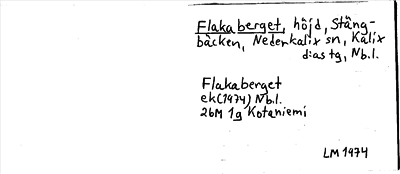 Flakaberget, höjd, Stång-
bäcken, Nederkalix sn, Kalix
d:as tg, Nb.l.
Flakaberget
ek(1974) Nb.l.
26M 1g Kotaniemi
LM 1974